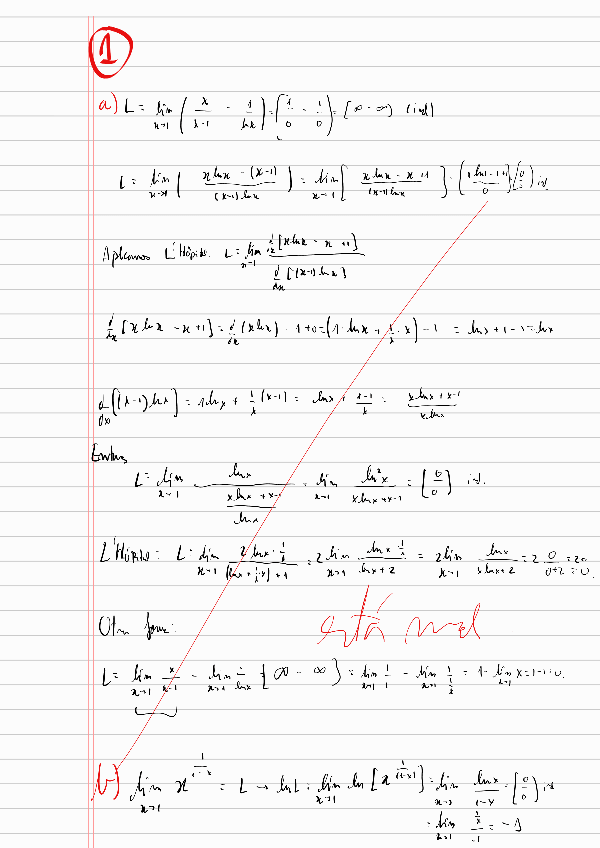 1
a) L = lim x→1 ( x/(x-1) - 1/lnx ) = ( 1/0 - 1/0 ) = [∞ - ∞) (ind)
L = lim x→1 ( (x lnx - (x-1))/((x-1) lnx) ) = lim x→1 [ (x lnx - x + 1)/((x-1) lnx) ] = [ (1 ln1 - 1 + 1)/0 ] = [0/0] id
Aplicamos L'Hôpital. L = lim x→1 d/dx [x lnx - x + 1] / d/dx [(x-1) lnx]
d/dx [x lnx - x + 1] = d/dx (x lnx) - 1 + 0 = (1·lnx + 1/x · x) - 1 = lnx + 1 - 1 = lnx
d/dx [(x-1) lnx] = 1 lnx + 1/x (x-1) = lnx + (x-1)/x = (x lnx + x - 1)/(x lnx)
Entonces
L = lim x→1 lnx / ((x lnx + x-1)/lnx) = lim x→1 ln²x/(x lnx + x-1) = [0/0] id.
L'Hôpital: L = lim x→1 (2 lnx · 1/x)/((lnx + 1/x · x) + 1) = 2 lim x→1 (lnx · 1/x)/(lnx + 2) = 2 lim x→1 lnx/(x lnx + 2) = 2 0/(0+2) = 2·0 = 0.
Otra forma:
está mal
L = lim x→1 x/(x-1) - lim x→1 1/lnx = [∞ - ∞) = lim x→1 1/1 - lim x→1 1/(1/x) = 1 - lim x→1 x = 1 - 1 = 0.
b) lim x→1 x^(1/(1-x)) = L → ln L = lim x→1 ln [x^(1/(1-x))] = lim x→1 lnx/(1-x) = [0/0] id
= lim x→1 (1/x)/-1 = -1